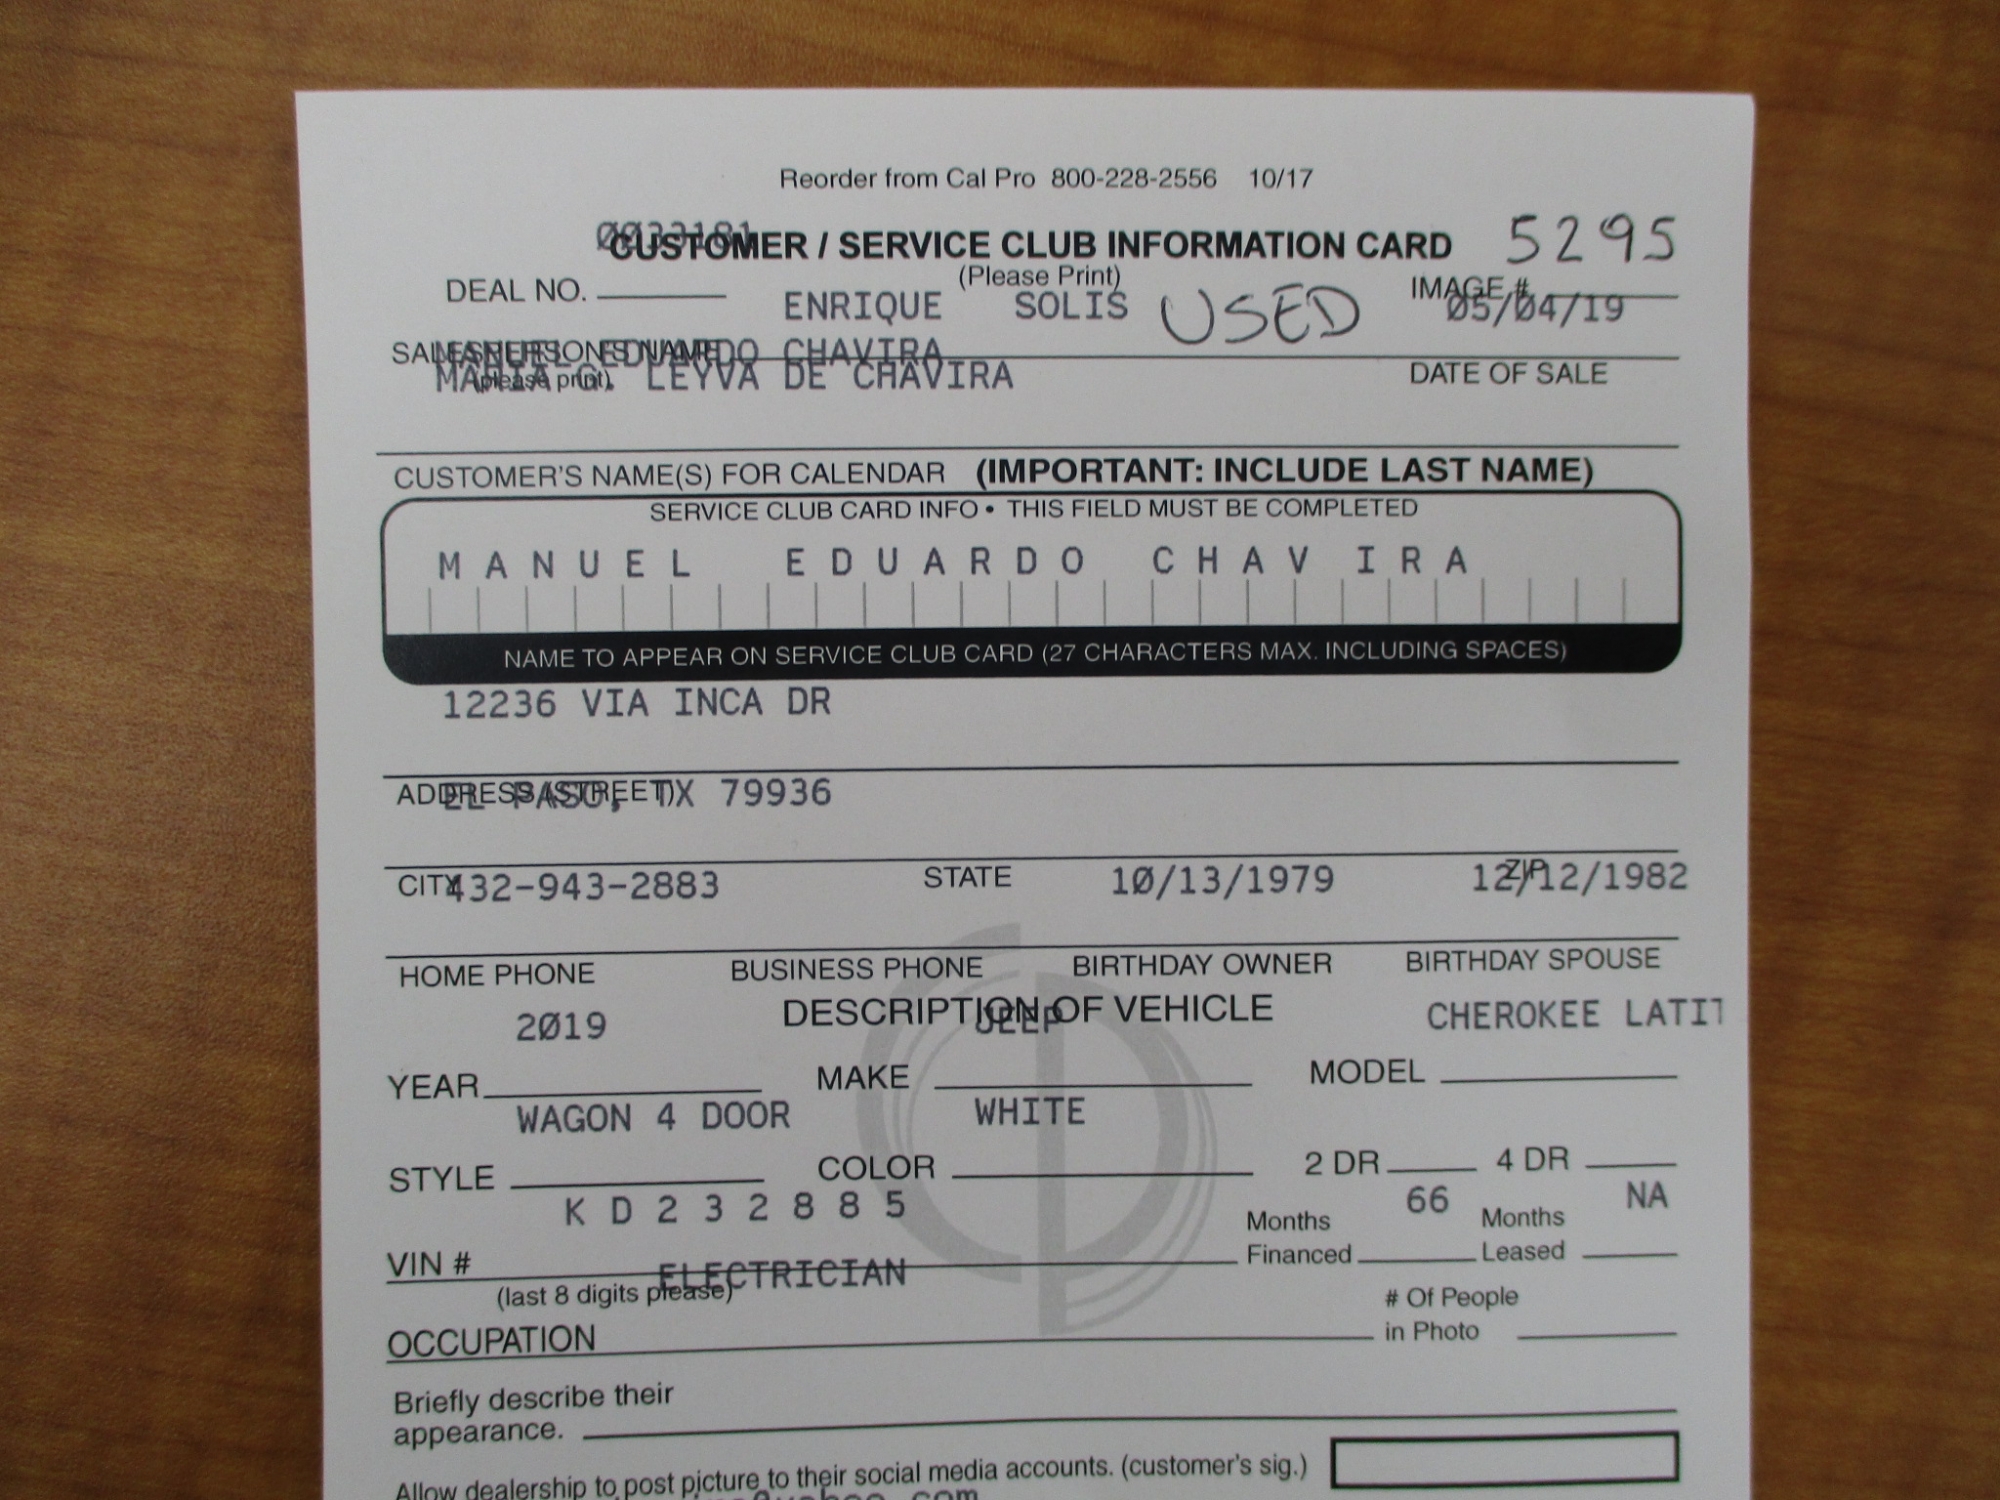 Reorder from Cal Pro 800-228-2556 10/17
0033181
CUSTOMER / SERVICE CLUB INFORMATION CARD 5295
(Please Print)
DEAL NO. IMAGE #
ENRIQUE SOLIS USED 05/04/19
SALESPERSON'S NAME
MANUEL EDUARDO CHAVIRA
(please print) DATE OF SALE
MARIA G. LEYVA DE CHAVIRA
CUSTOMER'S NAME(S) FOR CALENDAR (IMPORTANT: INCLUDE LAST NAME)
SERVICE CLUB CARD INFO • THIS FIELD MUST BE COMPLETED
MANUEL EDUARDO CHAV IRA
NAME TO APPEAR ON SERVICE CLUB CARD (27 CHARACTERS MAX. INCLUDING SPACES)
12236 VIA INCA DR
ADDRESS (STREET)
EL PASO, TX 79936
CITY STATE ZIP
432-943-2883 10/13/1979 12/12/1982
HOME PHONE BUSINESS PHONE BIRTHDAY OWNER BIRTHDAY SPOUSE
DESCRIPTION OF VEHICLE
2019 JEEP CHEROKEE LATIT
YEAR MAKE MODEL
WAGON 4 DOOR WHITE
STYLE COLOR 2 DR 4 DR
KD232885 66 NA
VIN # Months Financed Months Leased
ELECTRICIAN
(last 8 digits please)
OCCUPATION # Of People in Photo
Briefly describe their
appearance.
Allow dealership to post picture to their social media accounts. (customer's sig.)